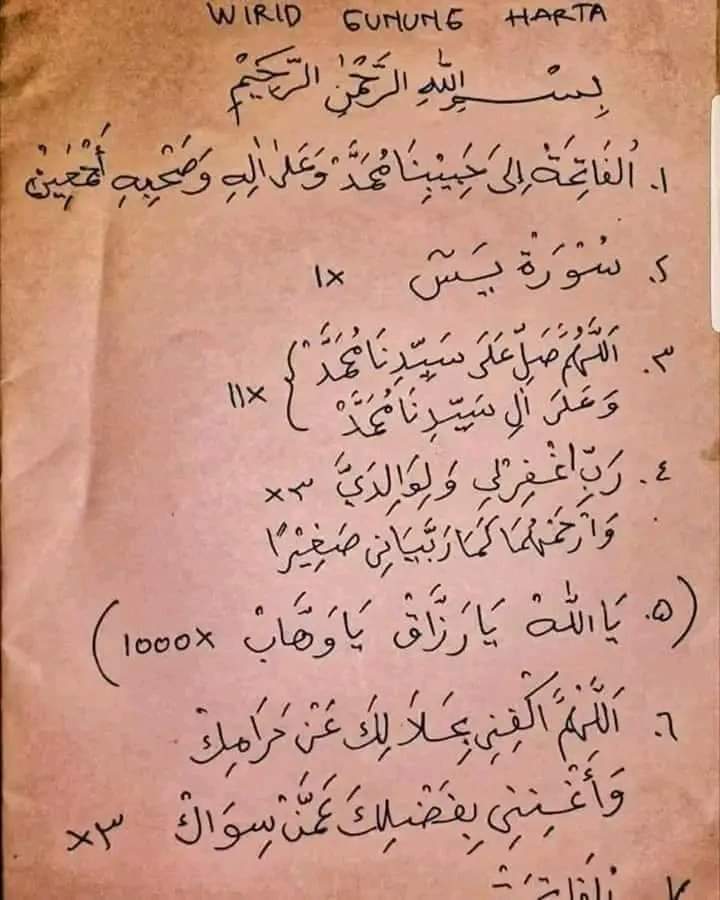 WIRID GUNUNG HARTA
بِسْــــمِ اللّٰهِ الرَّحْمٰنِ الرَّحِيْمِ
١. اُلْفَاتِحَةْ اِلَى حَبِيْبِنَا مُحَمَّدْ وَعَلٰى اٰلِهِ وَصَحْبِهِ أَجْمَعِيْنْ
٢. سُوْرَةْ يَسٓ 1x
٣. اَللّٰهُمَّ صَلِّ عَلَى سَيِّدِنَا مُحَمَّدْ
وَعَلَى اٰلِ سَيِّدِنَا مُحَمَّدْ } 11x
٤. رَبِّ اغْفِرْلِي وَلِوَالِدَيَّ ٣x
وَارْحَمْهُمَا كَمَا رَبَّيَانِي صَغِيْرًا
(٥. يَا اَللّٰهْ يَا رَزَّاقْ يَا وَهَّابْ 1000x)
٦. اَللّٰهُمَّ اكْفِنِي بِحَلَالِكَ عَنْ حَرَامِكْ
وَأَغْنِنِي بِفَضْلِكَ عَمَّنْ سِوَاكْ ٣x